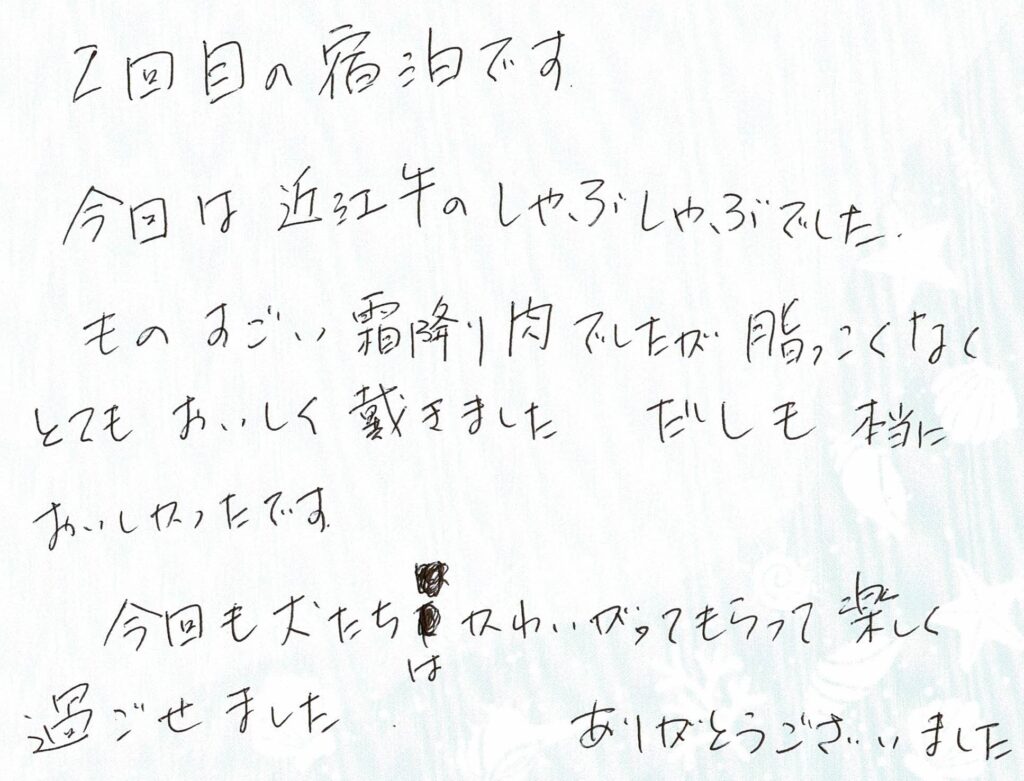 2回目の宿泊です.
今回は近江牛のしゃぶしゃぶでした.
ものすごい霜降り肉でしたが脂っこくなく
とてもおいしく戴きました だしも本当に
おいしかったです.
今回も犬たちはかわいがってもらって楽しく
過ごせました. ありがとうございました